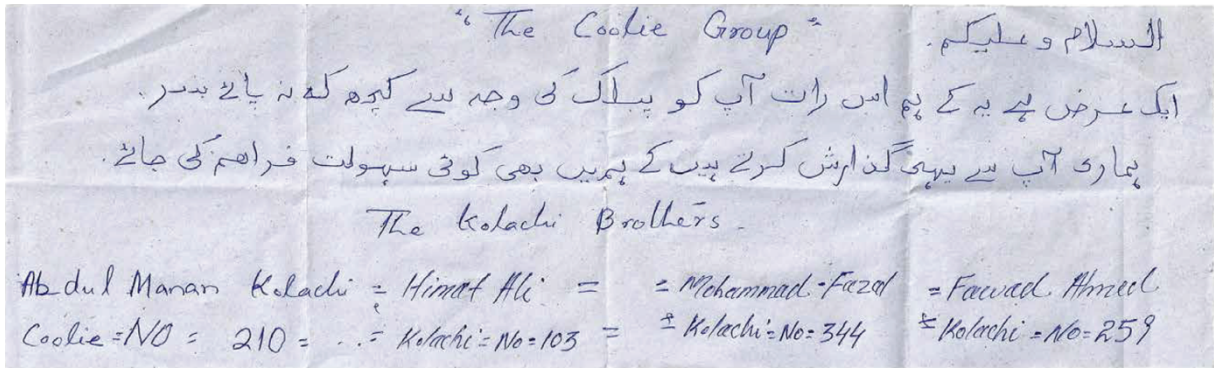 "The Coolie Group" السلام وعلیکم.
ایک عرض ہے یہ کے ہم اس رات آپ کو پبلک کی وجہ سے کچھ کہہ نہ پائے ہیں.
ہماری آپ سے یہی گذارش کرتے ہیں کے ہمیں بھی کوئی سہولت فراھم کی جائے.
The Kolachi Brothers.
Abdul Manan Kolachi = Himat Ali = = Mohammad-Fazal = Fawad Ahmed
Coolie=NO= 210= ..= Kolachi=No=103 = = Kolachi=No=344 = Kolachi=No=259